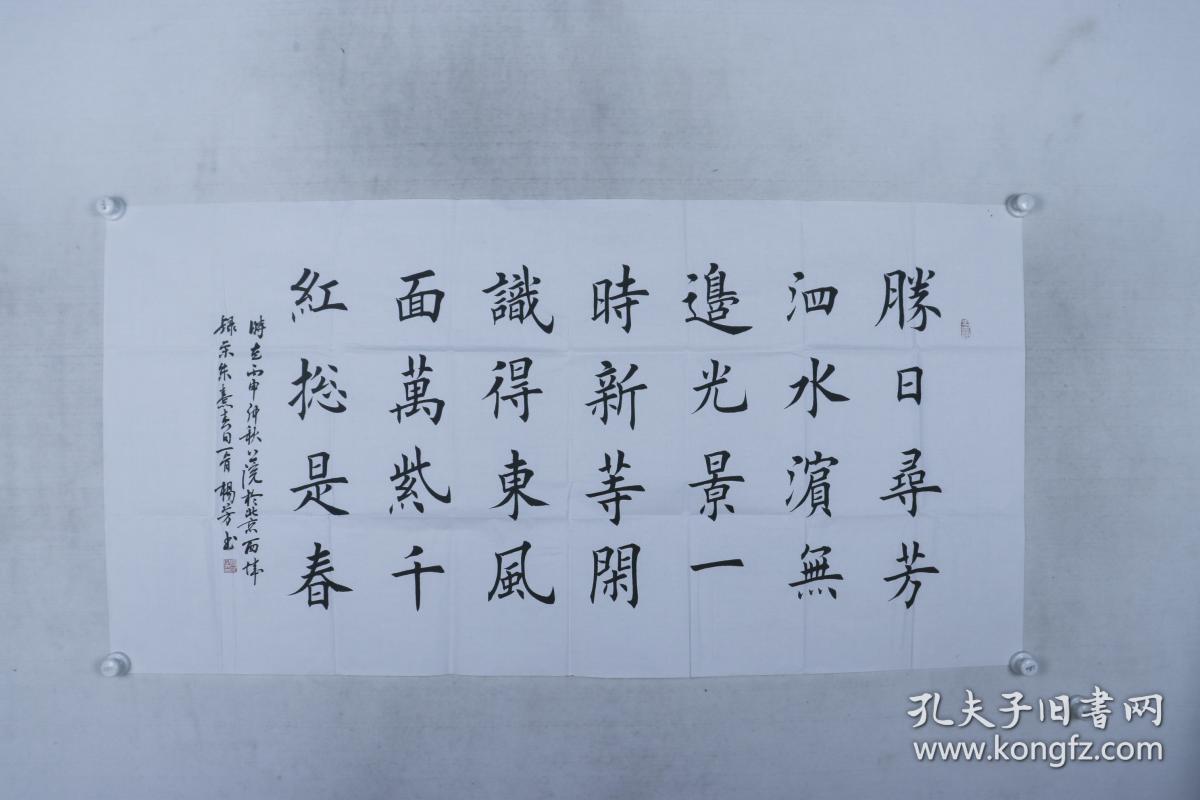 勝日尋芳
泗水濵無
邉光景一
時新等閑
識得東風
面萬紫千
紅捴是春
時在丙申仲秋 於北京西城
録宋朱熹春日一首 楊芳书
孔夫子旧書网
www.kongfz.com